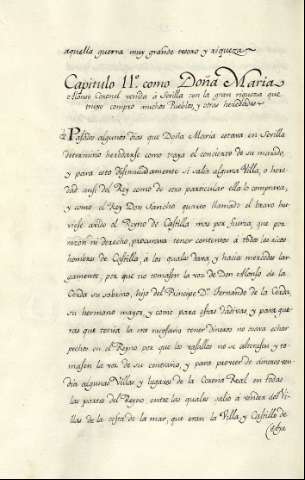 aquella guerra muy grande tesoro y riqueza
Capitulo 11º. como Doña Maria
Alonso Coronel venida á Sevilla con la gran riqueza que
truxo compro muchos Pueblos, y otros heredades
Pasados algunos dias que Doña Maria estava en Sevilla
determino heredarse como traya el concierto de su marido,
y para esto disimuladamente si salia alguna Villa, o here
dad ansi del Rey como de otro particular ella lo comprava,
y como el Rey Don Sancho quarto llamado el bravo hu-
viese avido el Reyno de Castilla mas por fuerza, que por
razon ni derecho, procurava tener contentos á todos los ricos
hombres de Castilla, á los quales dava, y hacia mercedes lar-
gamente, por que no tomasen la voz de Don Alonso de la
Cerda su sobrino, hijo del Principe Dn. Fernando de la Cerda,
su hermano mayor, y como para estas dadivas, y para guer-
ras que tenia la era necesario tener dineros no osava echar
pechos en el Reyno por que los vasallos no se alterasen y to-
masen la voz de su contrario, y para proveer de dineros ven-
dia algunas Villas y lugares de la Corona Real en todas
las partes del Reyno entre las quales salio á vender Vi-
llas de la costa de la mar, que eran la Villa y Castillo de